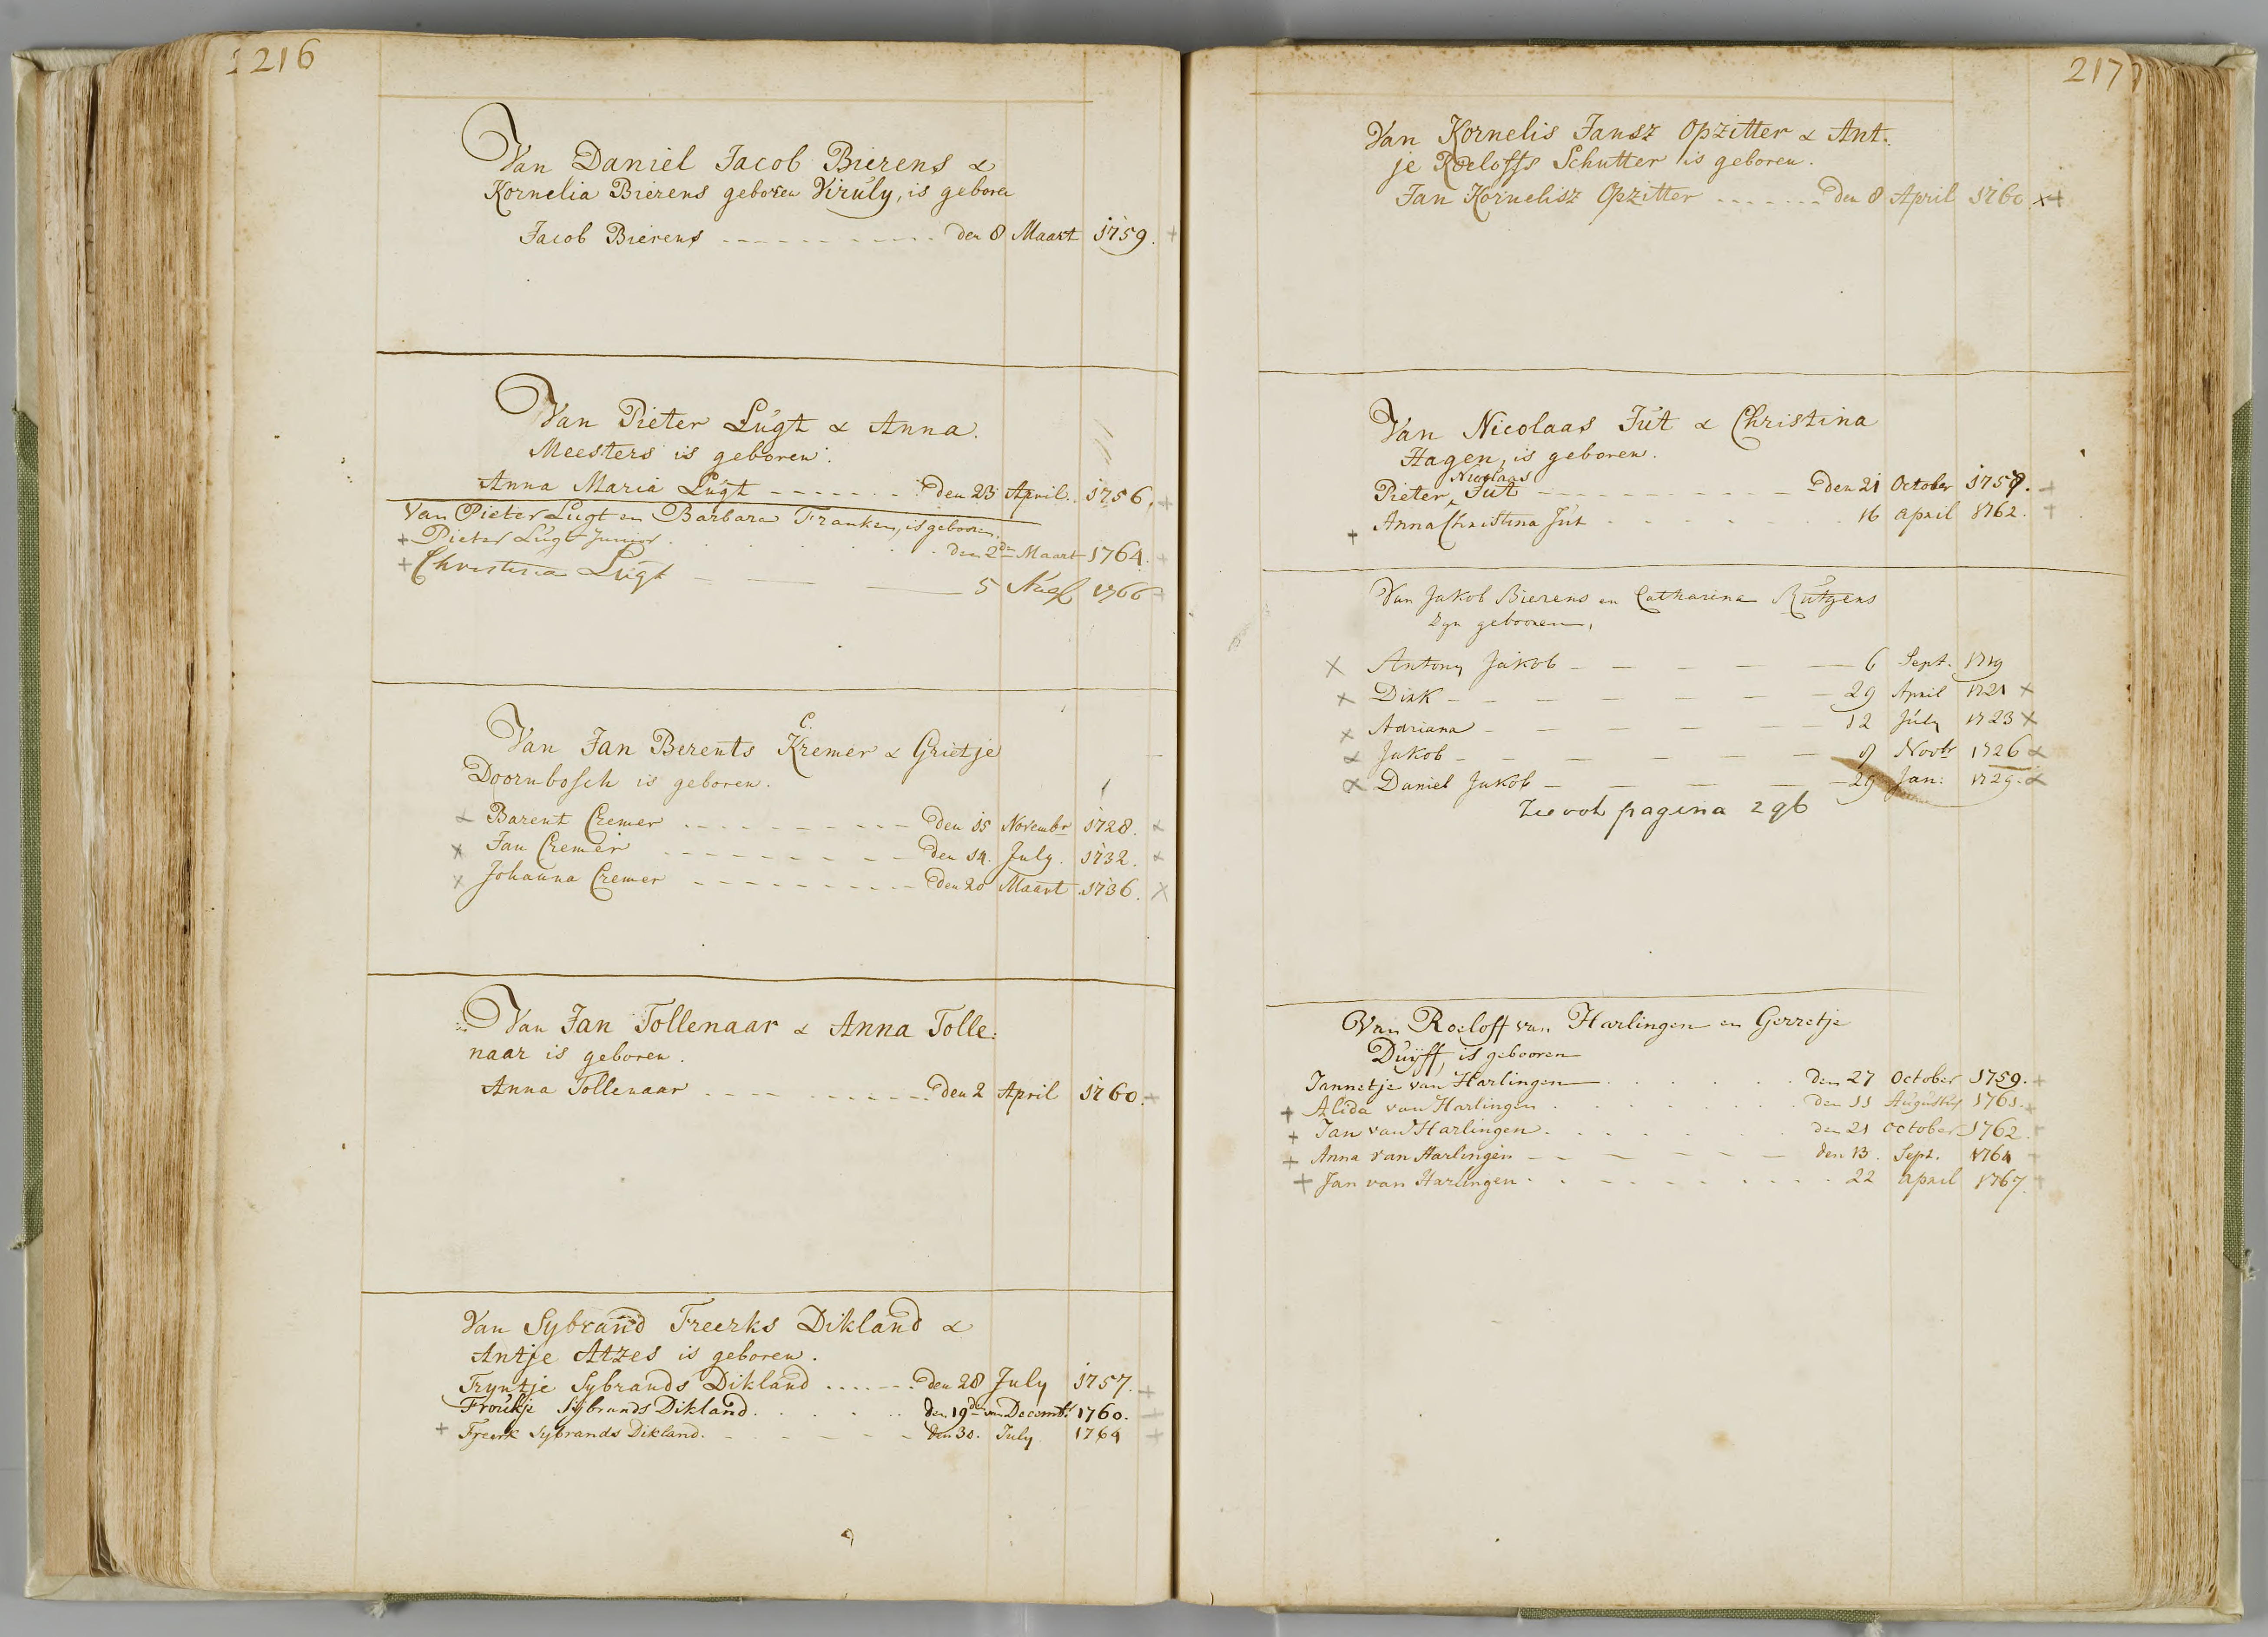 216
Van Daniel Jacob Bierens &
Kornelia Bierens geboren Viruly, is geboren
Jacob Bierens - - - - - - - - - - den 8 Maart 1759. +
Van Pieter Lugt & Anna.
Meesters is geboren.
Anna Maria Lugt - - - - - - - den 23 April. 1756. +
Van Pieter Lugt en Barbara Franken, is gebooren.
+ Pieter Lugt Junior . . . . . . . den 2de Maart 1764. +
+ Christina Lugt — — — 5 1766 +
C.
Van Jan Berents Kremer & Grietje
Doornbosch is geboren.
x Barent Cremer - - - - - - - - - den 15 Novembr 1728. x
x Jan Cremer - - - - - - - - - den 14. July. 1732. x
x Johanna Cremer - - - - - - - - - den 20 Maart 1736. x
Van Jan Tollenaar & Anna Tolle:
naar is geboren.
Anna Tollenaar - - - - - - - - - den 2 April 1760. +
Van Sybrand Freerks Dikland &
Antje Atzes is geboren.
Tryntje Sybrands Dikland - - - - - - den 28 July 1757. +
Froukje Sybrands Dikland . . . . . den 19de van Decemb. 1760. +
+ Freerk Sybrands Dikland. - - - - - den 30. July 1764 +
217
Van Kornelis Jansz Opzitter & Ant.
je Roeloffs Schutter is geboren.
Jan Kornelisz Opzitter - - - - - - - den 8 April 1760. x+
Van Nicolaas Jut & Christina
Hagen, is geboren.
Nicolaas
Pieter ^ Jut - - - - - - - - - - den 21 October 1759. +
+ Anna Christina Jut - - - - - - - - 16 april 1762. +
Van Jakob Bierens en Catharina Rutgers
zyn gebooren,
x Antony Jakob — — — — — 6 Sept. 1719
x Dirk — — — — — — 29 April 1721 x
x Adriana — — — — — — 12 July 1723 x
x Jakob — — — — — — 9 Novbr 1726 x
x Daniel Jakob — — — — — 29 Jan: 1729. x
Zie ook pagina 296
Van Roeloff van Harlingen en Gerretje
Duijff, is gebooren
Jannetje van Harlingen . . . . . . den 27 October 1759. +
+ Alida van Harlingen . . . . . . . den 11 Augustus 1761. +
+ Jan van Harlingen . . . . . . . den 21 October 1762. +
+ Anna van Harlingen - - - - - - den 13. Sept. 1764 +
+ Jan van Harlingen . - - - - - - - - 22 april 1767. +